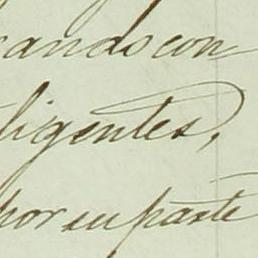 rando con
ligentes,
por su parte